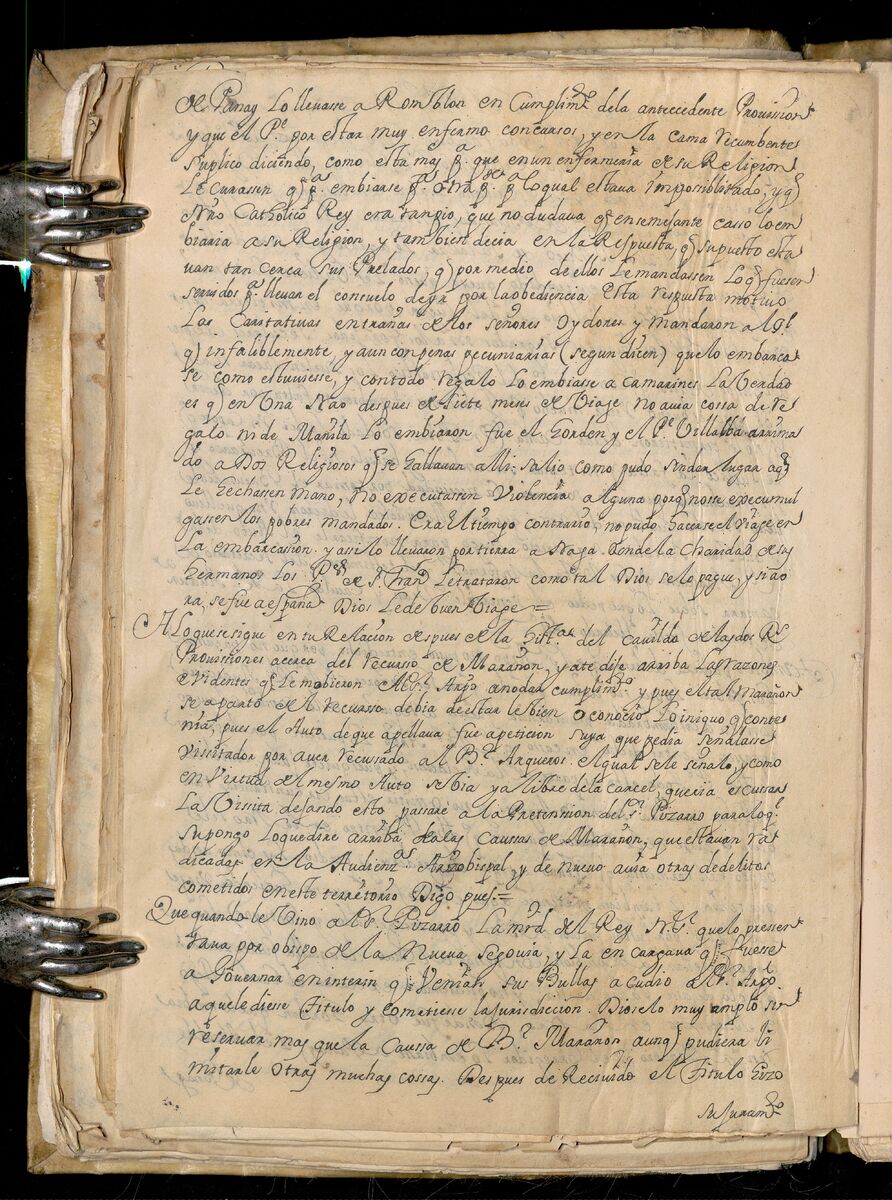 de Panay lo lleuasse a Romblon en Cumplim.to dela antecedente Prouission
y que el P.e por estar muy enfermo con cursos, y en la cama recumbente
suplico diciendo, como esta mas p.a que en un enfermeria de su Religion
Le Curassen q̃ p.a embiarse p.a otra p.te p.a lo qual estaua imposiblitado, y q̃
Nrõ Catholico Rey era tan pio, que no dudaua q̃ en semejante casso lo em
biaria a su Religion, y tambien decia en la Respuesta, q̃ supuesto esta
uan tan cerca sus Prelados, q̃ por medio de ellos Le mandassen lo q̃ fuesen
seruidos p.a lleuar el consuelo de yr por la obediencia Esta respuesta motiuo
Las Caritatiuas entrañas de los señores Oydores y Mandaron al Gl
q̃ infaliblemente, y aun con penas pecuniarias (segun dicen) que lo embarca
se como estuuiesse, y con todo regalo Lo embiasse a Camarines La Verdad
es q̃ en Una Nao despues de siete meses de Viaje no auia cossa de re
galo ni de Manila Lo embiaron fue el Gorden y el P.e Villalba arrima
do a Dos Religiosos q̃ se hallauan alli. salio como pudo sin dar lugar a q̃
Le hechassen mano, no executassen Violencia alguna porq̃ no se excumul
gassen los pobres mandados. Era el tiempo contrario, no pudo hacerse el Viaje en
La embarcasion y assi lo lleuaron por tierra a Naga donde la Charidad de sus
hermanos los P.es de S. Fran.co Le trataron como tal Dios se lo pague, y si ao
ra, se fue a españa Dios Le de buen Viage =
A Lo que se sigue en tu Relacion despues de la del cauildo de las dos R.s
Prouissiones acerca del recursso de Marañon, ya te dije arriba Las razones
euidentes q̃ Le mobieron al S.r Arpo a no dar cumplim.to y pues el tal Marañon
se aparto del recursso debia de estar le bien o conocio Lo iniquo q̃ conte
nia, pues el Auto de que apellaua fue a peticion suya que pedia señalasse
Vissitador por auer recussado al B.r Arqueros. el qual se le señalo, y como
en Virtud del mesmo Auto se bia ya libre de la carcel, queria escussar
La Vissita dejando esto, passare a la Pretenssion del S.r Pizarro para lo q.l
supongo Lo que dixe arriba de las Caussas de Marañon, que estauan ra
dicadas en la Audienz.a Arzobispal, y de nueuo auia otras de delitos
cometidos en este territorio Digo pues =
Que quando le Vino al S.r Pizarro La mrd del Rey N. S.r que lo presen
taua por obispo de la Nueua Segouia, y La encargaua q̃ fuesse
a Gouernar en interin q̃ Venian sus Bullas acudio al S.r Arpo.
a que le diesse Titulo y cometiesse la jurisdiccion. Dioselo muy amplo sin
reseruar mas que la Caussa de B.r Marañon aunq̃ pudiera li
mitarle otras muchas cossas. Despues de Reciuido el Titulo hizo
su juram.to